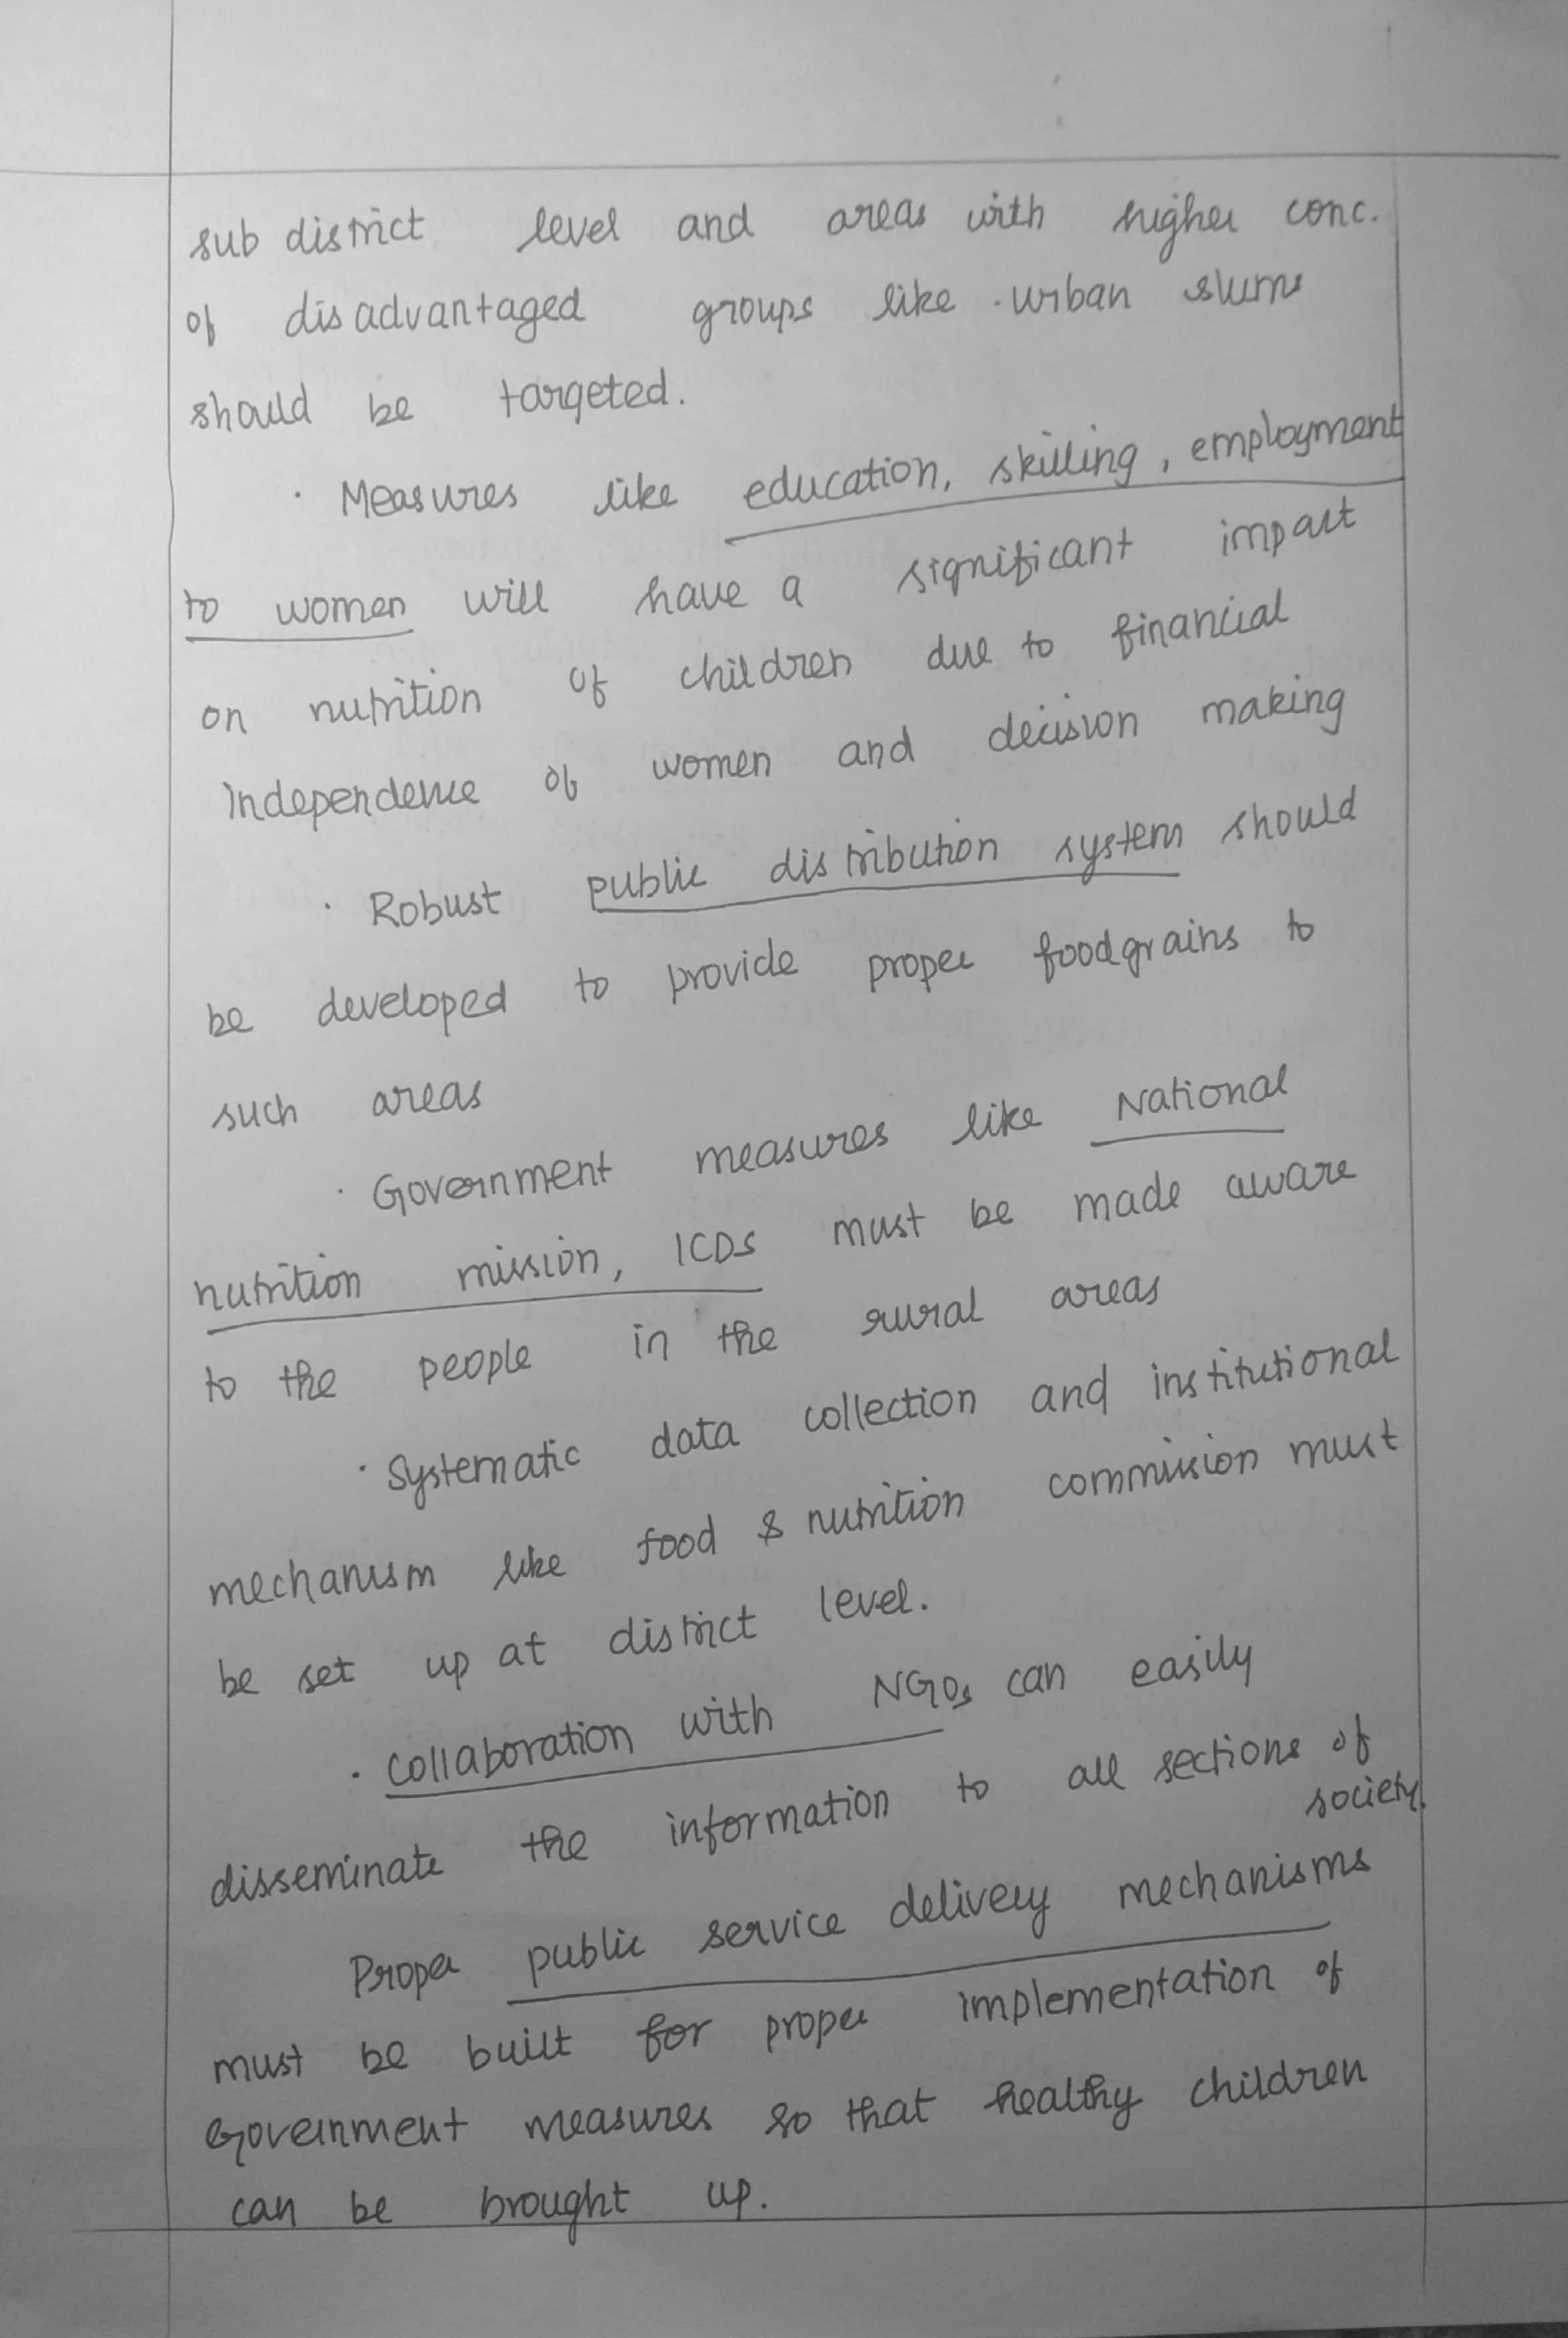 sub district level and areas with higher conc.
of disadvantaged groups like urban slums
should be targeted.
· Measures like education, skilling, employment
to women will have a significant impact
on nutrition of children due to financial
independence of women and decision making
· Robust public distribution system should
be developed to provide proper foodgrains to
such areas
· Government measures like National
nutrition mission, ICDS must be made aware
to the people in the rural areas
· Systematic data collection and institutional
mechanism like food & nutrition commission must
be set up at district level.
· collaboration with NGOs can easily
disseminate the information to all sections of
society.
Proper public service delivery mechanisms
must be built for proper implementation of
Government measures so that healthy children
can be brought up.